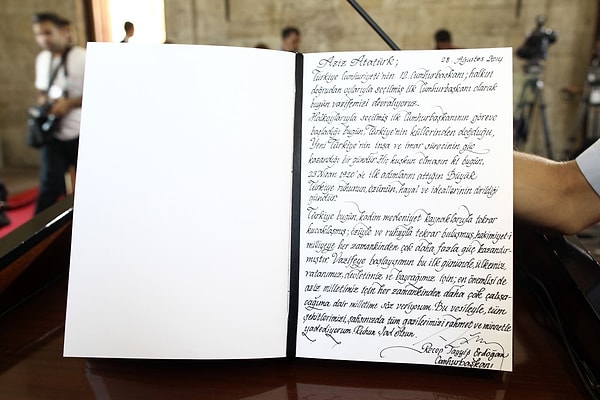 Aziz Atatürk; 28 Ağustos 2014
Türkiye Cumhuriyeti'nin 12. Cumhurbaşkanı; halkın
doğrudan oylarıyla seçilmiş ilk Cumhurbaşkanı olarak
bugün vazifemizi devralıyoruz.
Halkoylarıyla seçilmiş ilk Cumhurbaşkanının göreve
başladığı bugün, Türkiye'nin küllerinden doğduğu,
Yeni Türkiye'nin inşa ve imar sürecinin güç
kazandığı bir gündür. Hiç kuşkun olmasın ki bugün,
23 Nisan 1920'de ilk adımlarını attığın Büyük
Türkiye ruhunun, özünün, hayal ve ideallerinin dirildiği
gündür.
Türkiye bugün, kadim medeniyet kaynaklarıyla tekrar
kucaklaşmış; özüyle ve ruhuyla tekrar buluşmuş, hakimiyet-i
milliyeye her zamankinden çok daha fazla güç kazandır-
mıştır. Vazifeye başlayışımın bu ilk gününde, ülkemiz,
vatanımız, devletimiz ve bayrağımız için; en önemlisi de
aziz milletimiz için her zamankinden daha çok çalışa-
cağıma dair milletime söz veriyorum. Bu vesileyle, tüm
şehitlerimizi, şahsınızda tüm gazilerimizi rahmet ve minnetle
yadediyorum. Ruhun Şad Olsun.
Recep Tayyip Erdoğan
Cumhurbaşkanı